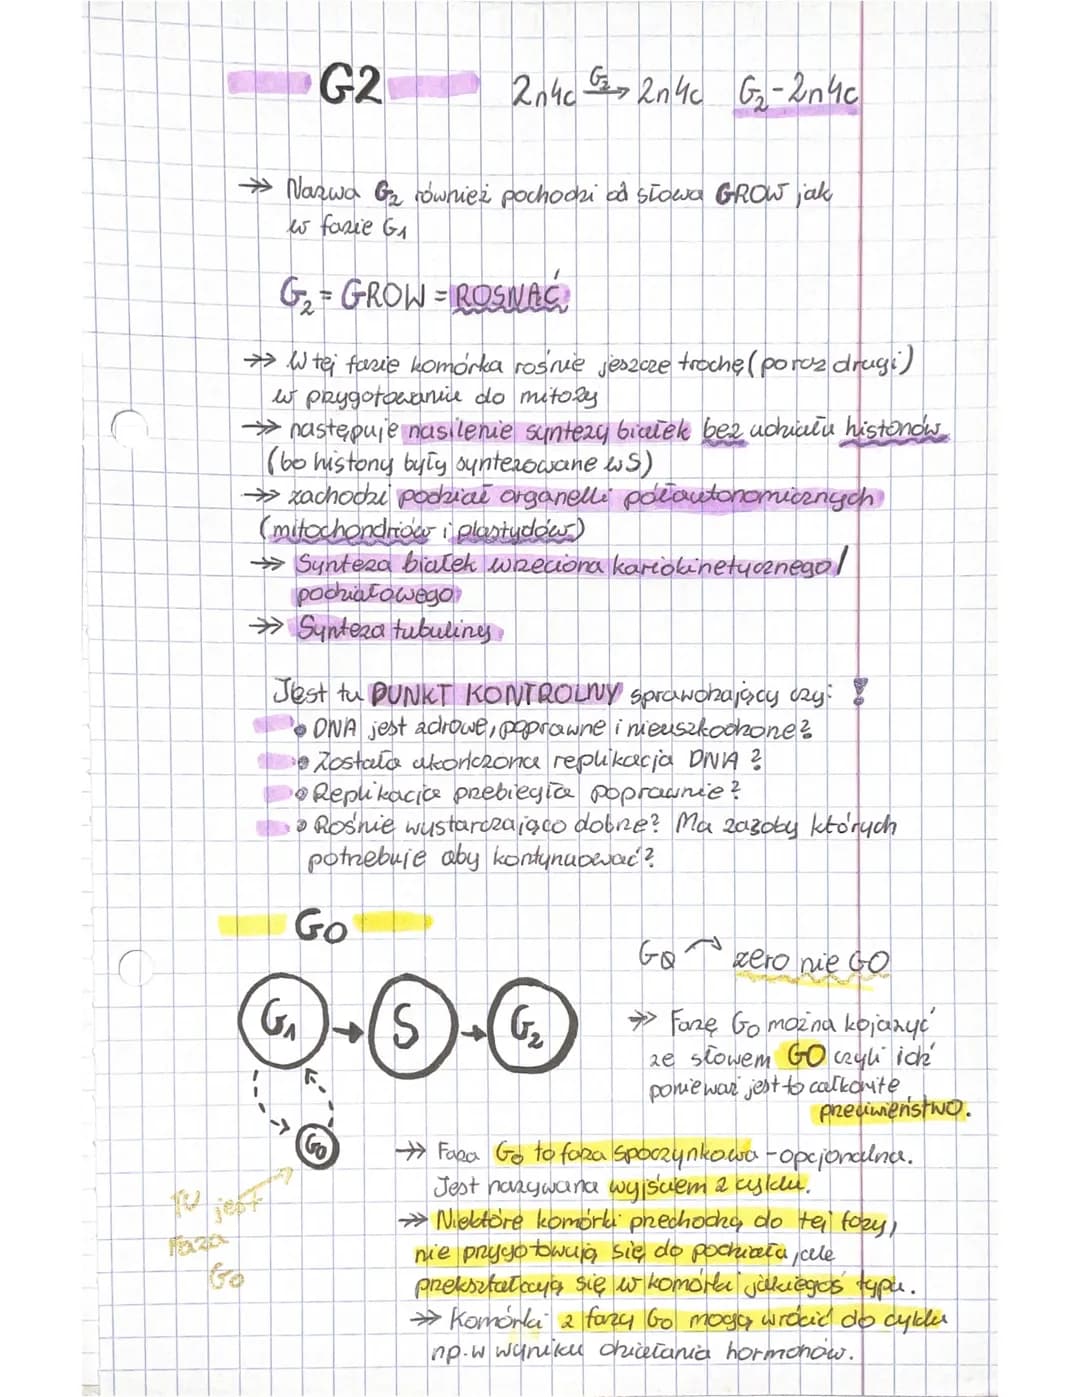 G2
2n4c G₂→ 2n4c G₂-2n4c
→» Nazwa G₂ również pochodzi od słowa GROW jak
w fazie G₁
G₂ = GROW = ROSNĄĆ
→» W tej fazie komórka rośnie jeszcze trochę (po raz drugi)
w przygotowaniu do mitozy
→» następuje nasilenie syntezy białek bez udziału histonów
(bo histony były syntezowane w S)
→» zachodzi podział organelli półautonomicznych
(mitochondriów i plastydów)
→» Synteza białek wrzeciona kariokinetycznego/
podziałowego
→» Synteza tubuliny
Jest tu PUNKT KONTROLNY sprawdzający czy: !
• DNA jest zdrowe, poprawne i nieuszkodzone?
• Została ukończona replikacja DNA?
• Replikacja przebiegła poprawnie?
• Rośnie wystarczająco dobrze? Ma zasoby których
potrzebuje aby kontynuować?
G0
G0 zero nie GO
G₁ → S → G₂
G0
TU jest
Faza
G0
→» Fazę G0 można kojarzyć
ze słowem GO czyli idź
ponieważ jest to całkowite
przeciwieństwo.
→» Faza G0 to faza spoczynkowa - opcjonalna.
Jest nazywana wyjściem z cyklu.
→» Niektóre komórki przechodzą do tej fazy,
nie przygotowują się do podziału, ale
przekształcają się w komórki jakiegoś typu.
→» Komórki z fazy G0 mogą wrócić do cyklu
np. w wyniku działania hormonów.